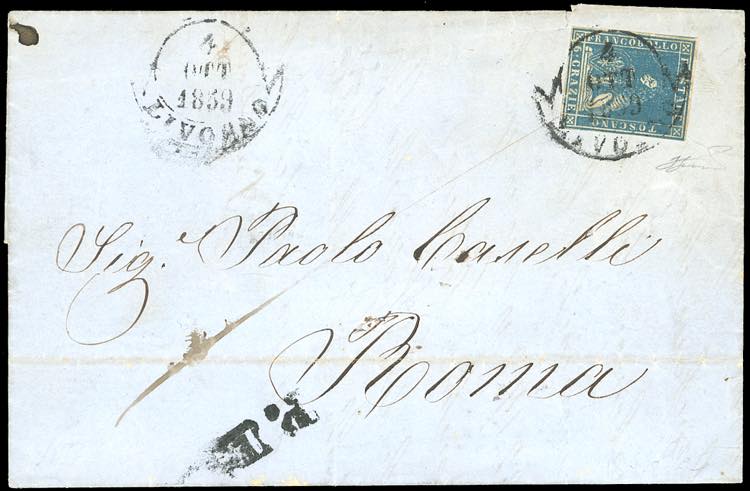 4
OTT
1859
LIVORNO
FRANCOBOLLO
POSTALE
TOSCANO
6 CRAZIE
4
OTT
Sig.e Paolo Caselli
Roma
P.D.